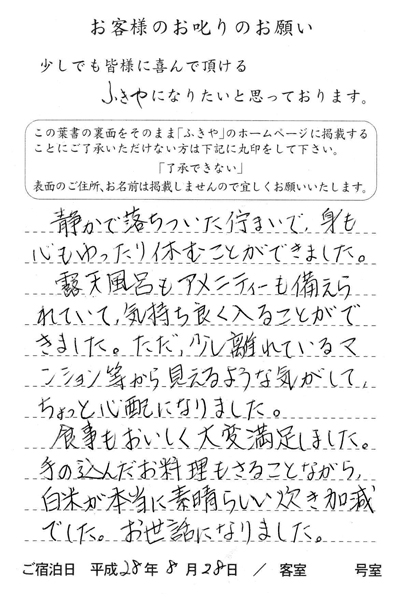 お客様のお叱りのお願い
少しでも皆様に喜んで頂ける
ふきやになりたいと思っております。
この葉書の裏面をそのまま「ふきや」のホームページに掲載する
ことにご了承いただけない方は下記に丸印をして下さい。
「了承できない」
表面のご住所、お名前は掲載しませんので宜しくお願いいたします。
静かで落ちついた佇まいで、身も
心もゆったり休むことができました。
露天風呂もアメニティーも備えら
れていて、気持ち良く入ることがで
きました。ただ、少し離れているマ
ンション等から見えるような気がして、
ちょっと心配になりました。
食事もおいしく大変満足しました。
手の込んだお料理もさることながら、
白米が本当に素晴らしい炊き加減
でした。お世話になりました。
ご宿泊日 平成28年8月28日 / 客室 号室